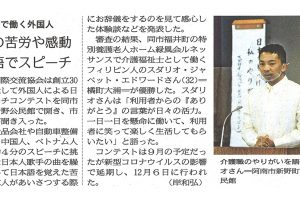 で働く外国人
の苦労や感動
語でスピーチ
際交流協会は創立30
して外国人による日
チコンテストを同市
野公民館で開き、市
聞き入った。
品会社や自動車整備
中国人、ベトナム人
約4分のスピーチに挑
日本人歌手の曲を
て日本語を覚えた苦
本人があいさつする際
にお辞儀をするのを見て感心し
た体験談などを発表した。
審査の結果、同市桑野町の特
別養護老人ホーム緑風会ルネッ
サンスで介護福祉士として働く
フィリピン人のスダリオ・ジャ
ベット・エドワードさん(32)=
橘町大浦=が優勝した。スダリ
オさんは「利用者からの『あり
がとう』の言葉が日々の活力。
一日一日を懸命に働いて、利用
者に笑って楽しく生活してもら
いたい」と語った。
コンテストは9月の予定だっ
たが新型コロナウイルスの影響
で延期し、12月6日に行われ
た。(岸和弘)
介護職のやりがいを語
オさん=阿南市新野町
民館